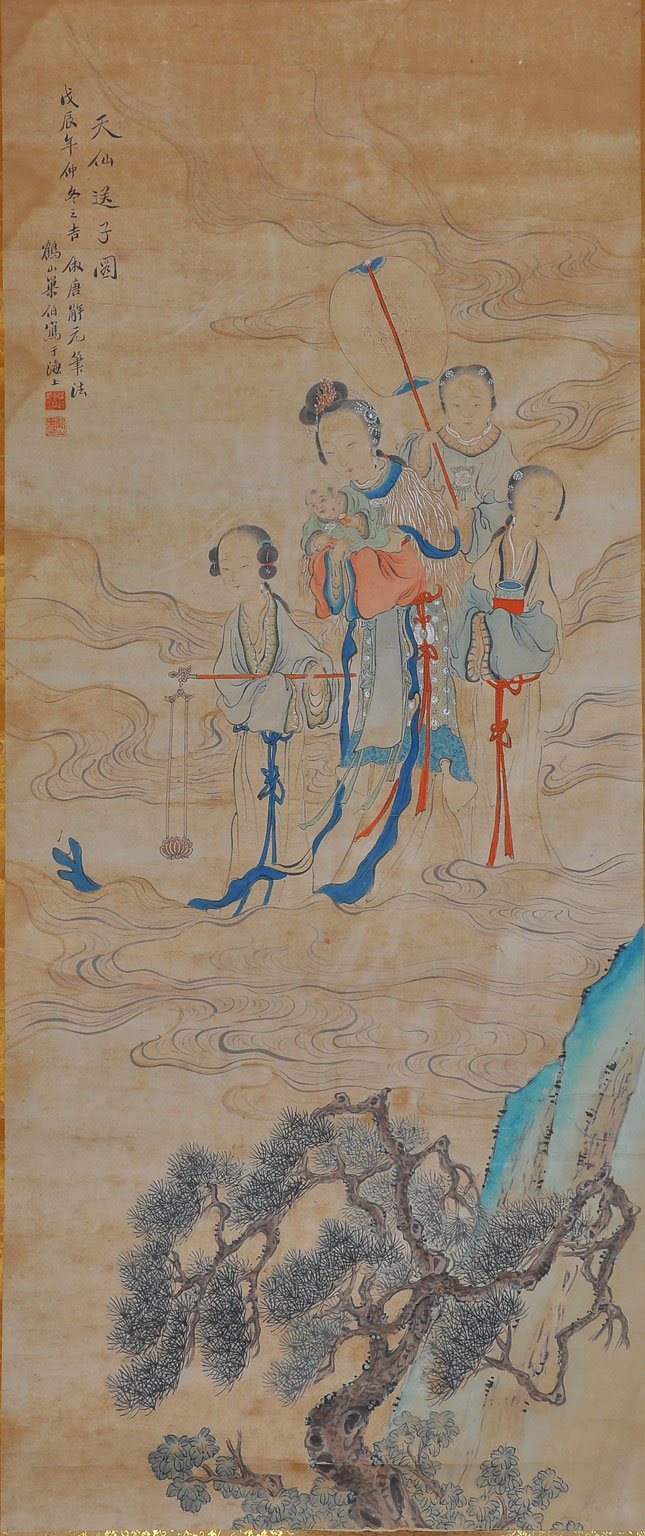 天仙送子圖
戊辰年仲冬之吉仿唐解元筆法
鶴山巢伯寫于海上